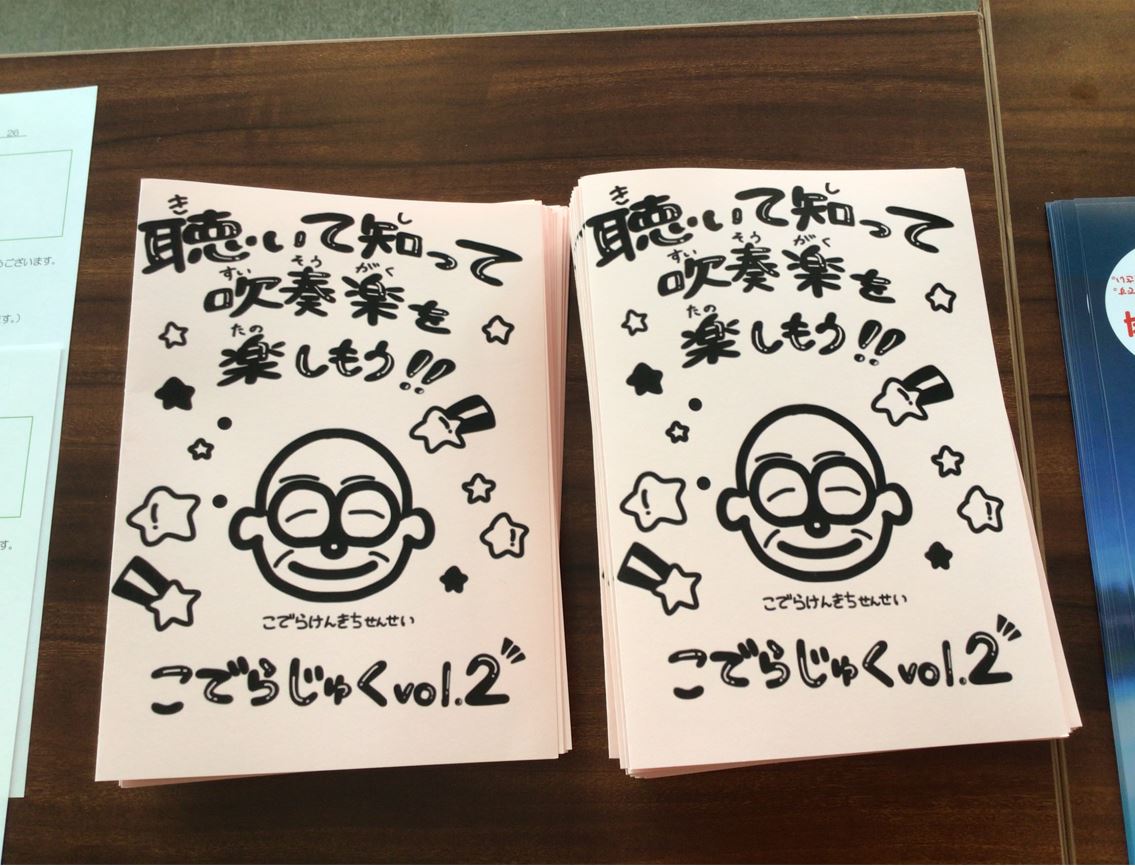 26
うございます。
ます。）
す。
き し
聴いて知って
すい そう がく
吹奏楽を
たの
楽しもう!!
こでらけんきちせんせい
こでらじゅくvol.2
き し
聴いて知って
すい そう がく
吹奏楽を
たの
楽しもう!!
こでらけんきちせんせい
こでらじゅくvol.2